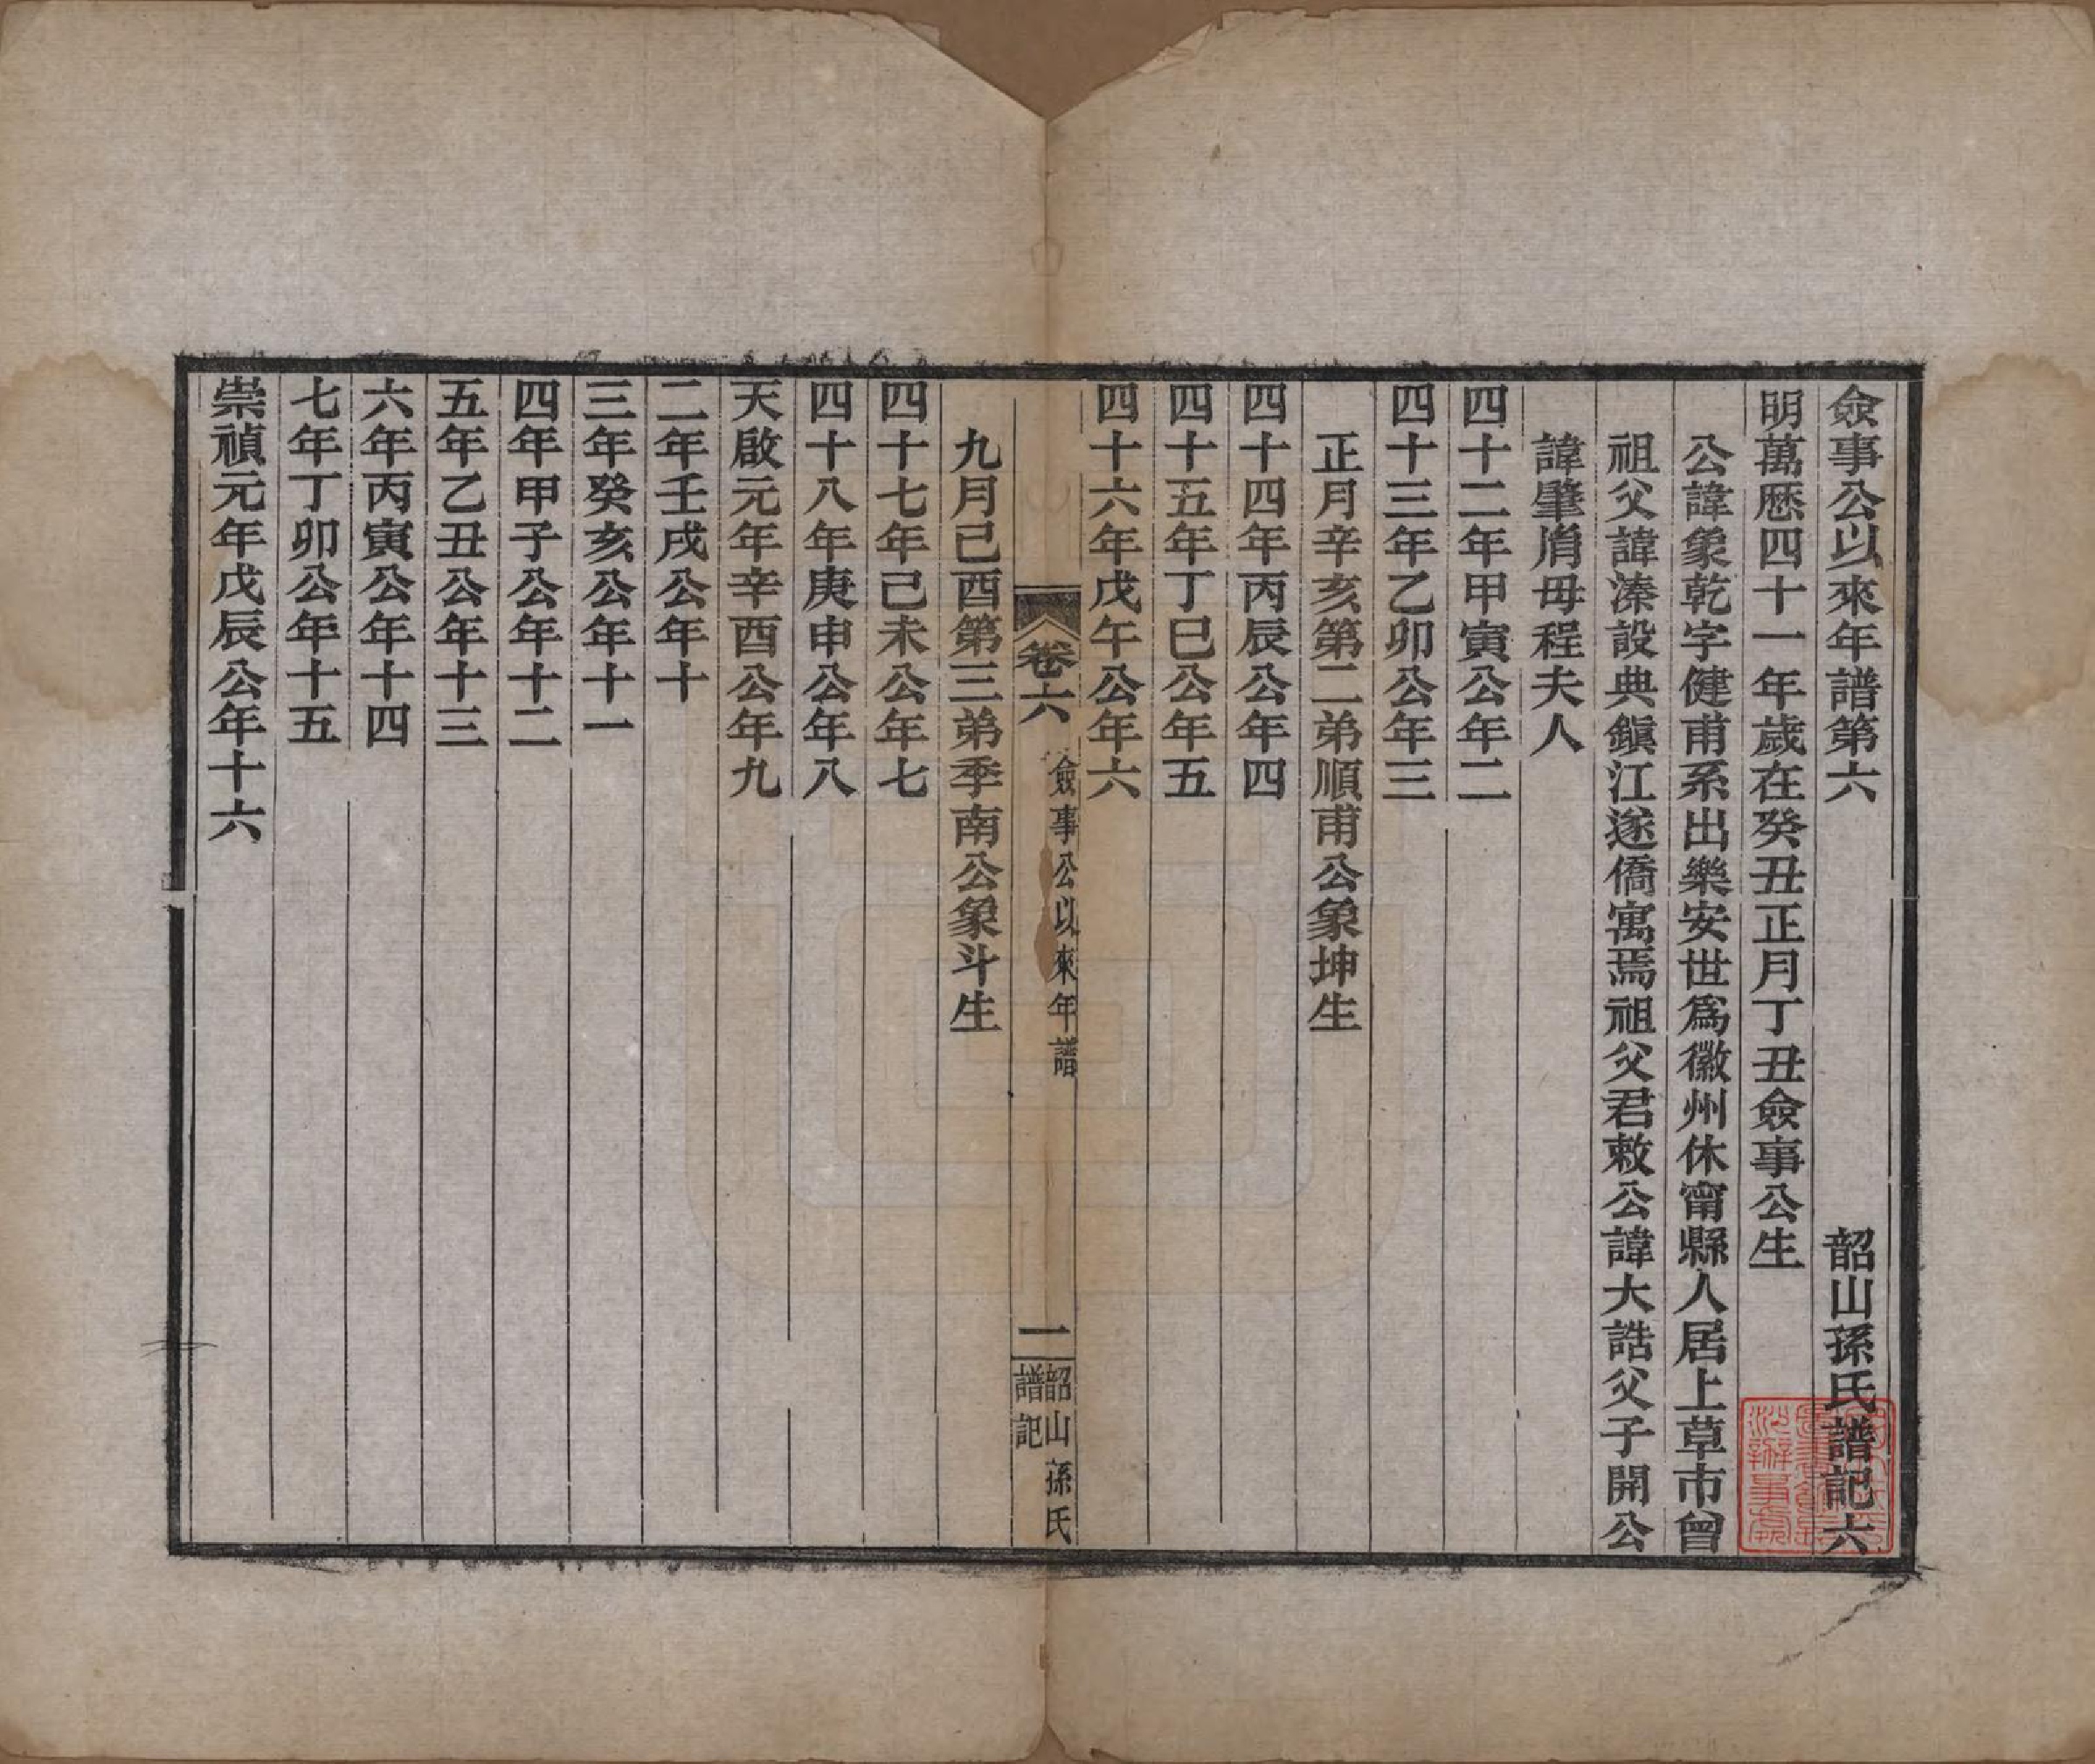 僉事公以來年譜第六　韶山孫氏譜記六
明萬厯四十一年歲在癸丑正月丁丑僉事公生
公諱象乾字健甫系出樂安世爲徽州休甯縣人居上草市曾
祖父諱溱設典鎭江遂僑寓焉祖父君敕公諱大誥父子開公
諱肇肯母程夫人
四十二年甲寅公年二
四十三年乙卯公年三
正月辛亥第二弟順甫公象坤生
四十四年丙辰公年四
四十五年丁巳公年五
四十六年戊午公年六
卷六　僉事公以來年譜　一　韶山孫氏譜記
九月己酉第三弟季南公象斗生
四十七年己未公年七
四十八年庚申公年八
天啟元年辛酉公年九
二年壬戌公年十
三年癸亥公年十一
四年甲子公年十二
五年乙丑公年十三
六年丙寅公年十四
七年丁卯公年十五
崇禎元年戊辰公年十六